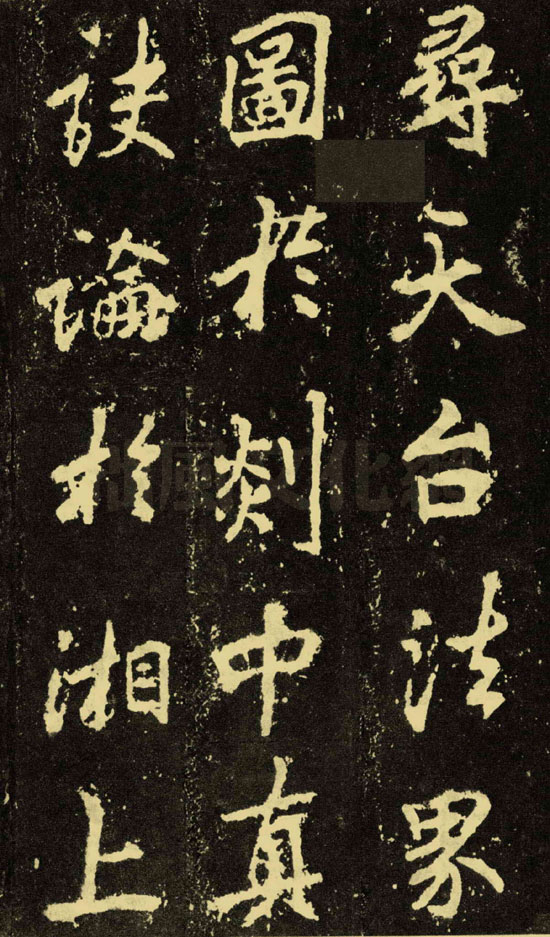 尋天台法界
圖於剡中真
訣論於湘上